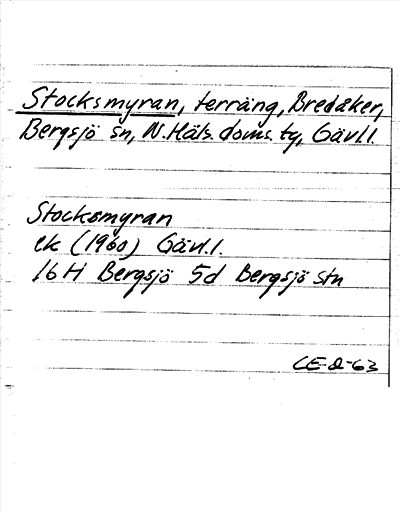 Stocksmyran, terräng, Bredåker,
Bergsjö sn, N.Häls. doms. tg, Gävl.l.
Stocksmyran
ek (1960) Gävl.l.
16H Bergsjö 5d Bergsjö stn